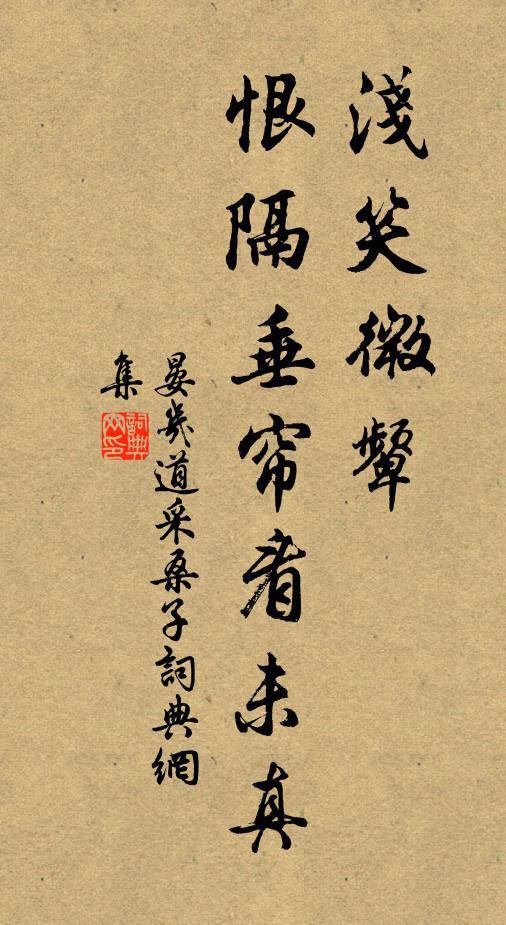 淺笑微顰
恨隔垂帘看未真
晏幾道采桑子詞典網
集
詞典網印